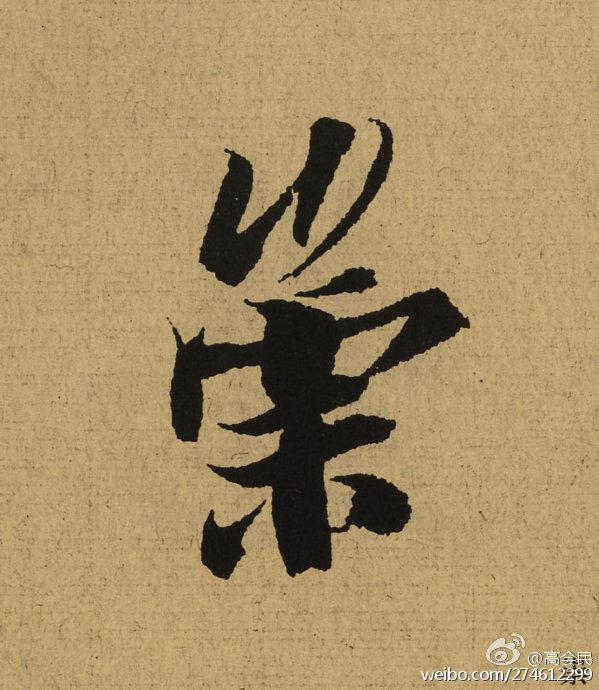 崇
@高会民
weibo.com/274612299